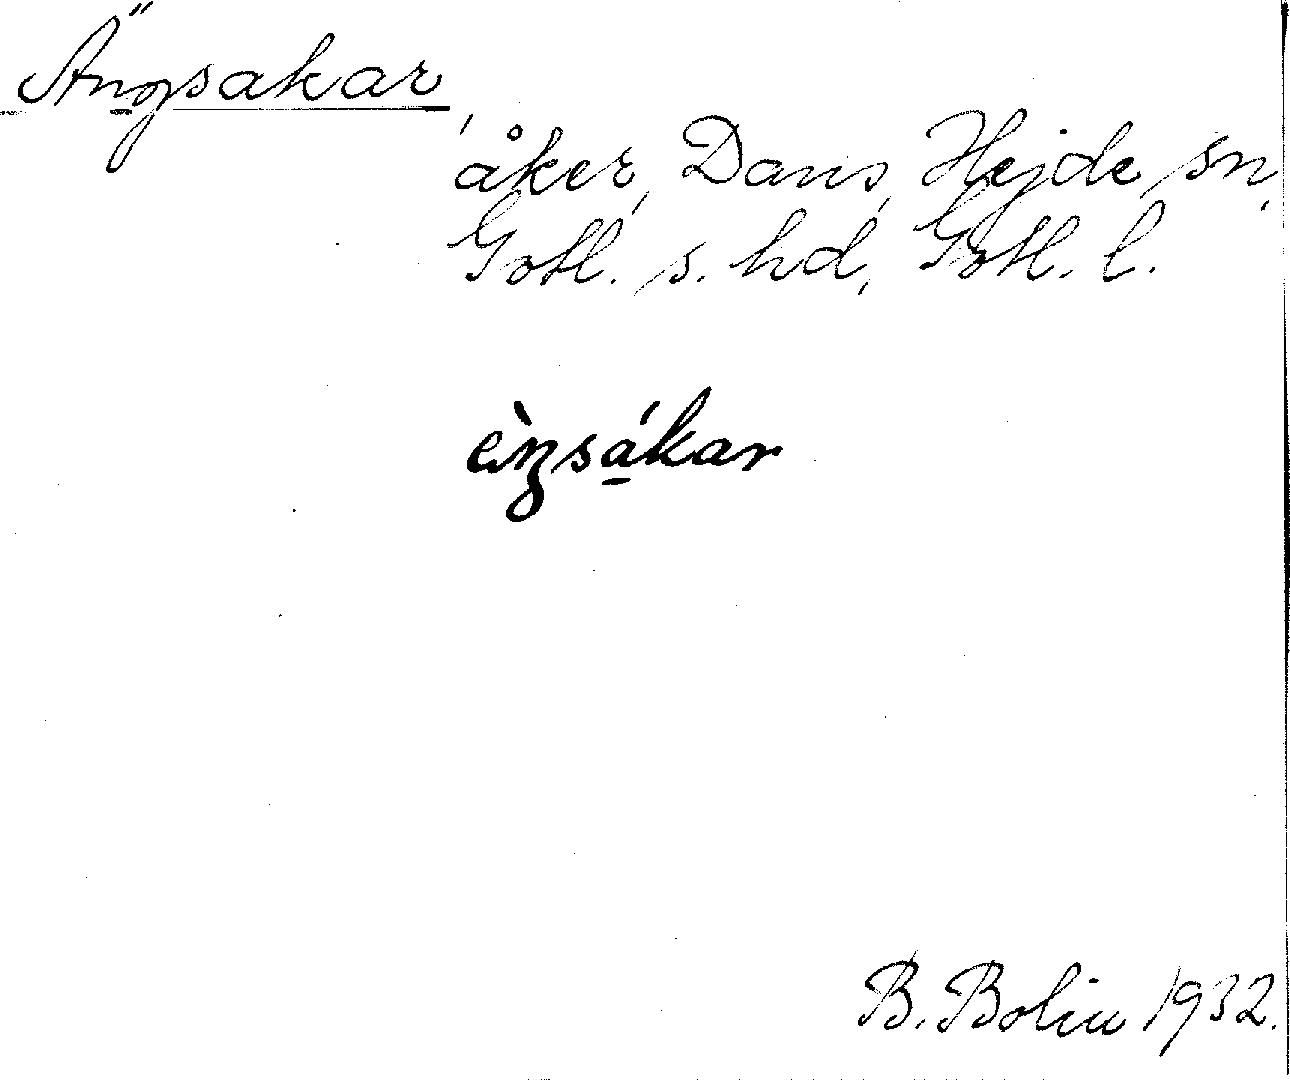 Ängsakar,
åker, Dans, Hejde sn,
Gotl. s. hd, Gotl. l.
èŋsákar
B. Bolin 1932.